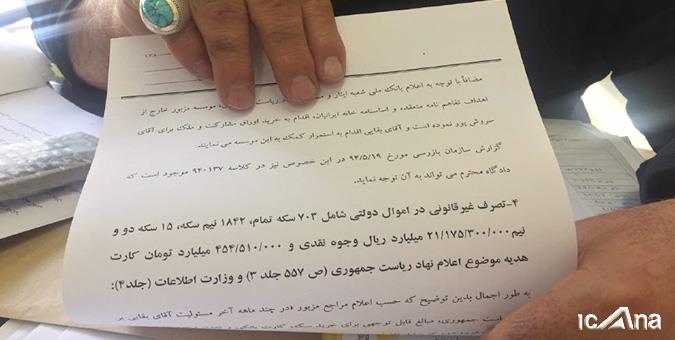 ۱۳۸
مضافاً با توجه به اعلام بانک ملی شعبه ایثار و ریاست موسسه مزبور خارج از
اهداف تفاهم نامه منعقده و اساسنامه خانه ایرانیان، اقدام به خرید اوراق مشارکت و ملک برای آقای
سروش پور نموده است و آقای بقایی اقدام به استمرار کمک به این موسسه می نمایند.
گزارش سازمان بازرسی مورخ ۹۴/۵/۱۹ در این خصوص نیز در کلاسه ۹۴۰۱۳۷ موجود است که
دادگاه محترم می تواند به آن توجه نماید.
۴-تصرف غیرقانونی در اموال دولتی شامل ۷۰۳ سکه تمام، ۱۸۴۲ نیم سکه، ۱۵ سکه دو و
نیم ۲۱/۱۷۵/۳۰۰/۰۰۰ میلیارد ریال وجوه نقدی و ۴۵۴/۵۱۰/۰۰۰ میلیارد تومان کارت
هدیه موضوع اعلام نهاد ریاست جمهوری (ص ۵۵۷ جلد ۳) و وزارت اطلاعات (جلد۴):
به طور اجمال بدین توضیح که حسب اعلام مراجع مزبور «در چند ماهه آخر مسئولیت آقای بقایی بر
است جمهوری، مبالغ قابل توجهی برای خرید سکه، کارت
icana